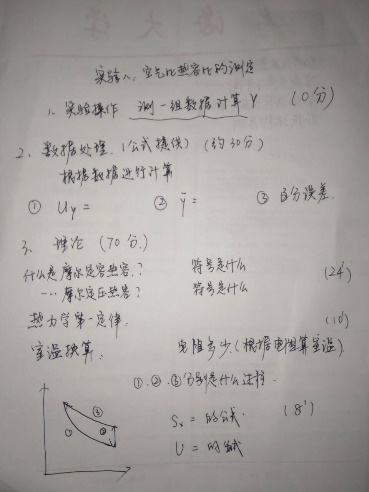 实验八: 空气比热容比的测定
1、实验操作 测一组数据计算γ (10分)
2、数据处理.(公式提供) (约30分)
根据数据进行计算
① Uγ = ② γ̄ = ③ 百分误差.
3、理论 (70分.)
什么是摩尔定容热容.? 符号是什么
... 摩尔定压热容? 符号是什么 (24')
热力学第一定律. (10')
室温换算: 电阻多少.(根据电阻算室温).
①.②.③分别是什么过程.
② ① ③
Sx = 的公式. (8')
U = 的公式